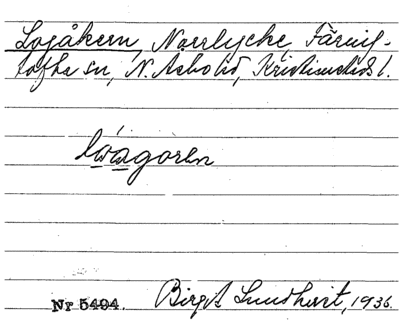 Logåkern, Norrlycke, Färing-
tofta sn, N. Åsbo hd, Kristianstads l.
lωágoren
Nr 5494. Birgit Lundkvist, 1936.